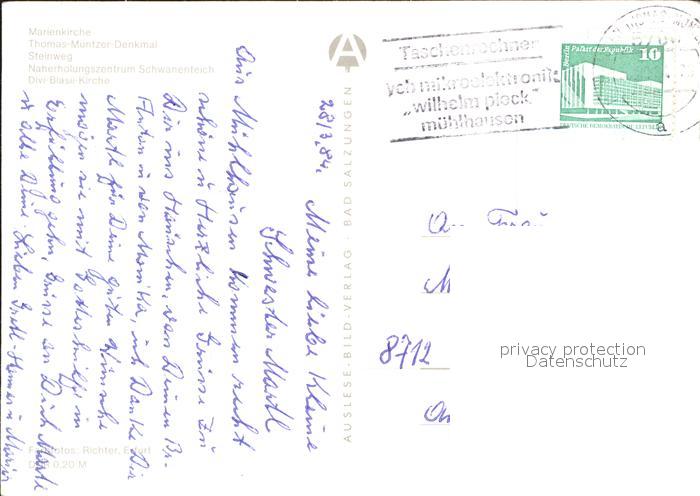 Marienkirche
Thomas-Müntzer-Denkmal
Steinweg
Naherholungszentrum Schwanenteich
Divi-Blasii-Kirche
Taschenrechner
veb mikroelektronik
„wilhelm pieck"
mühlhausen
Berlin, Palast der Republik 10
DEUTSCHE DEMOKRATISCHE REPUBLIK
a
AUSLESE-BILD-VERLAG · BAD SALZUNGEN
28/3.84. Meine liebe Kleine
Schwester Martl
Aus Mühlhausen kommen recht
schöne u Herzliche Grüsse zu
Dir ins Häuschen, von Deinen Br.
Anton u von Monika, ich Danke Dir
Martl für Deine guten Wünsche
mögen sie mit Gotteshilfe in
Erfüllung gehn, Grüsse an Dich Martl
u alle Deine Lieben
An Frau
M
8712
privacy protection
Datenschutz
Fotos: Richter, Erfurt
0,20 M